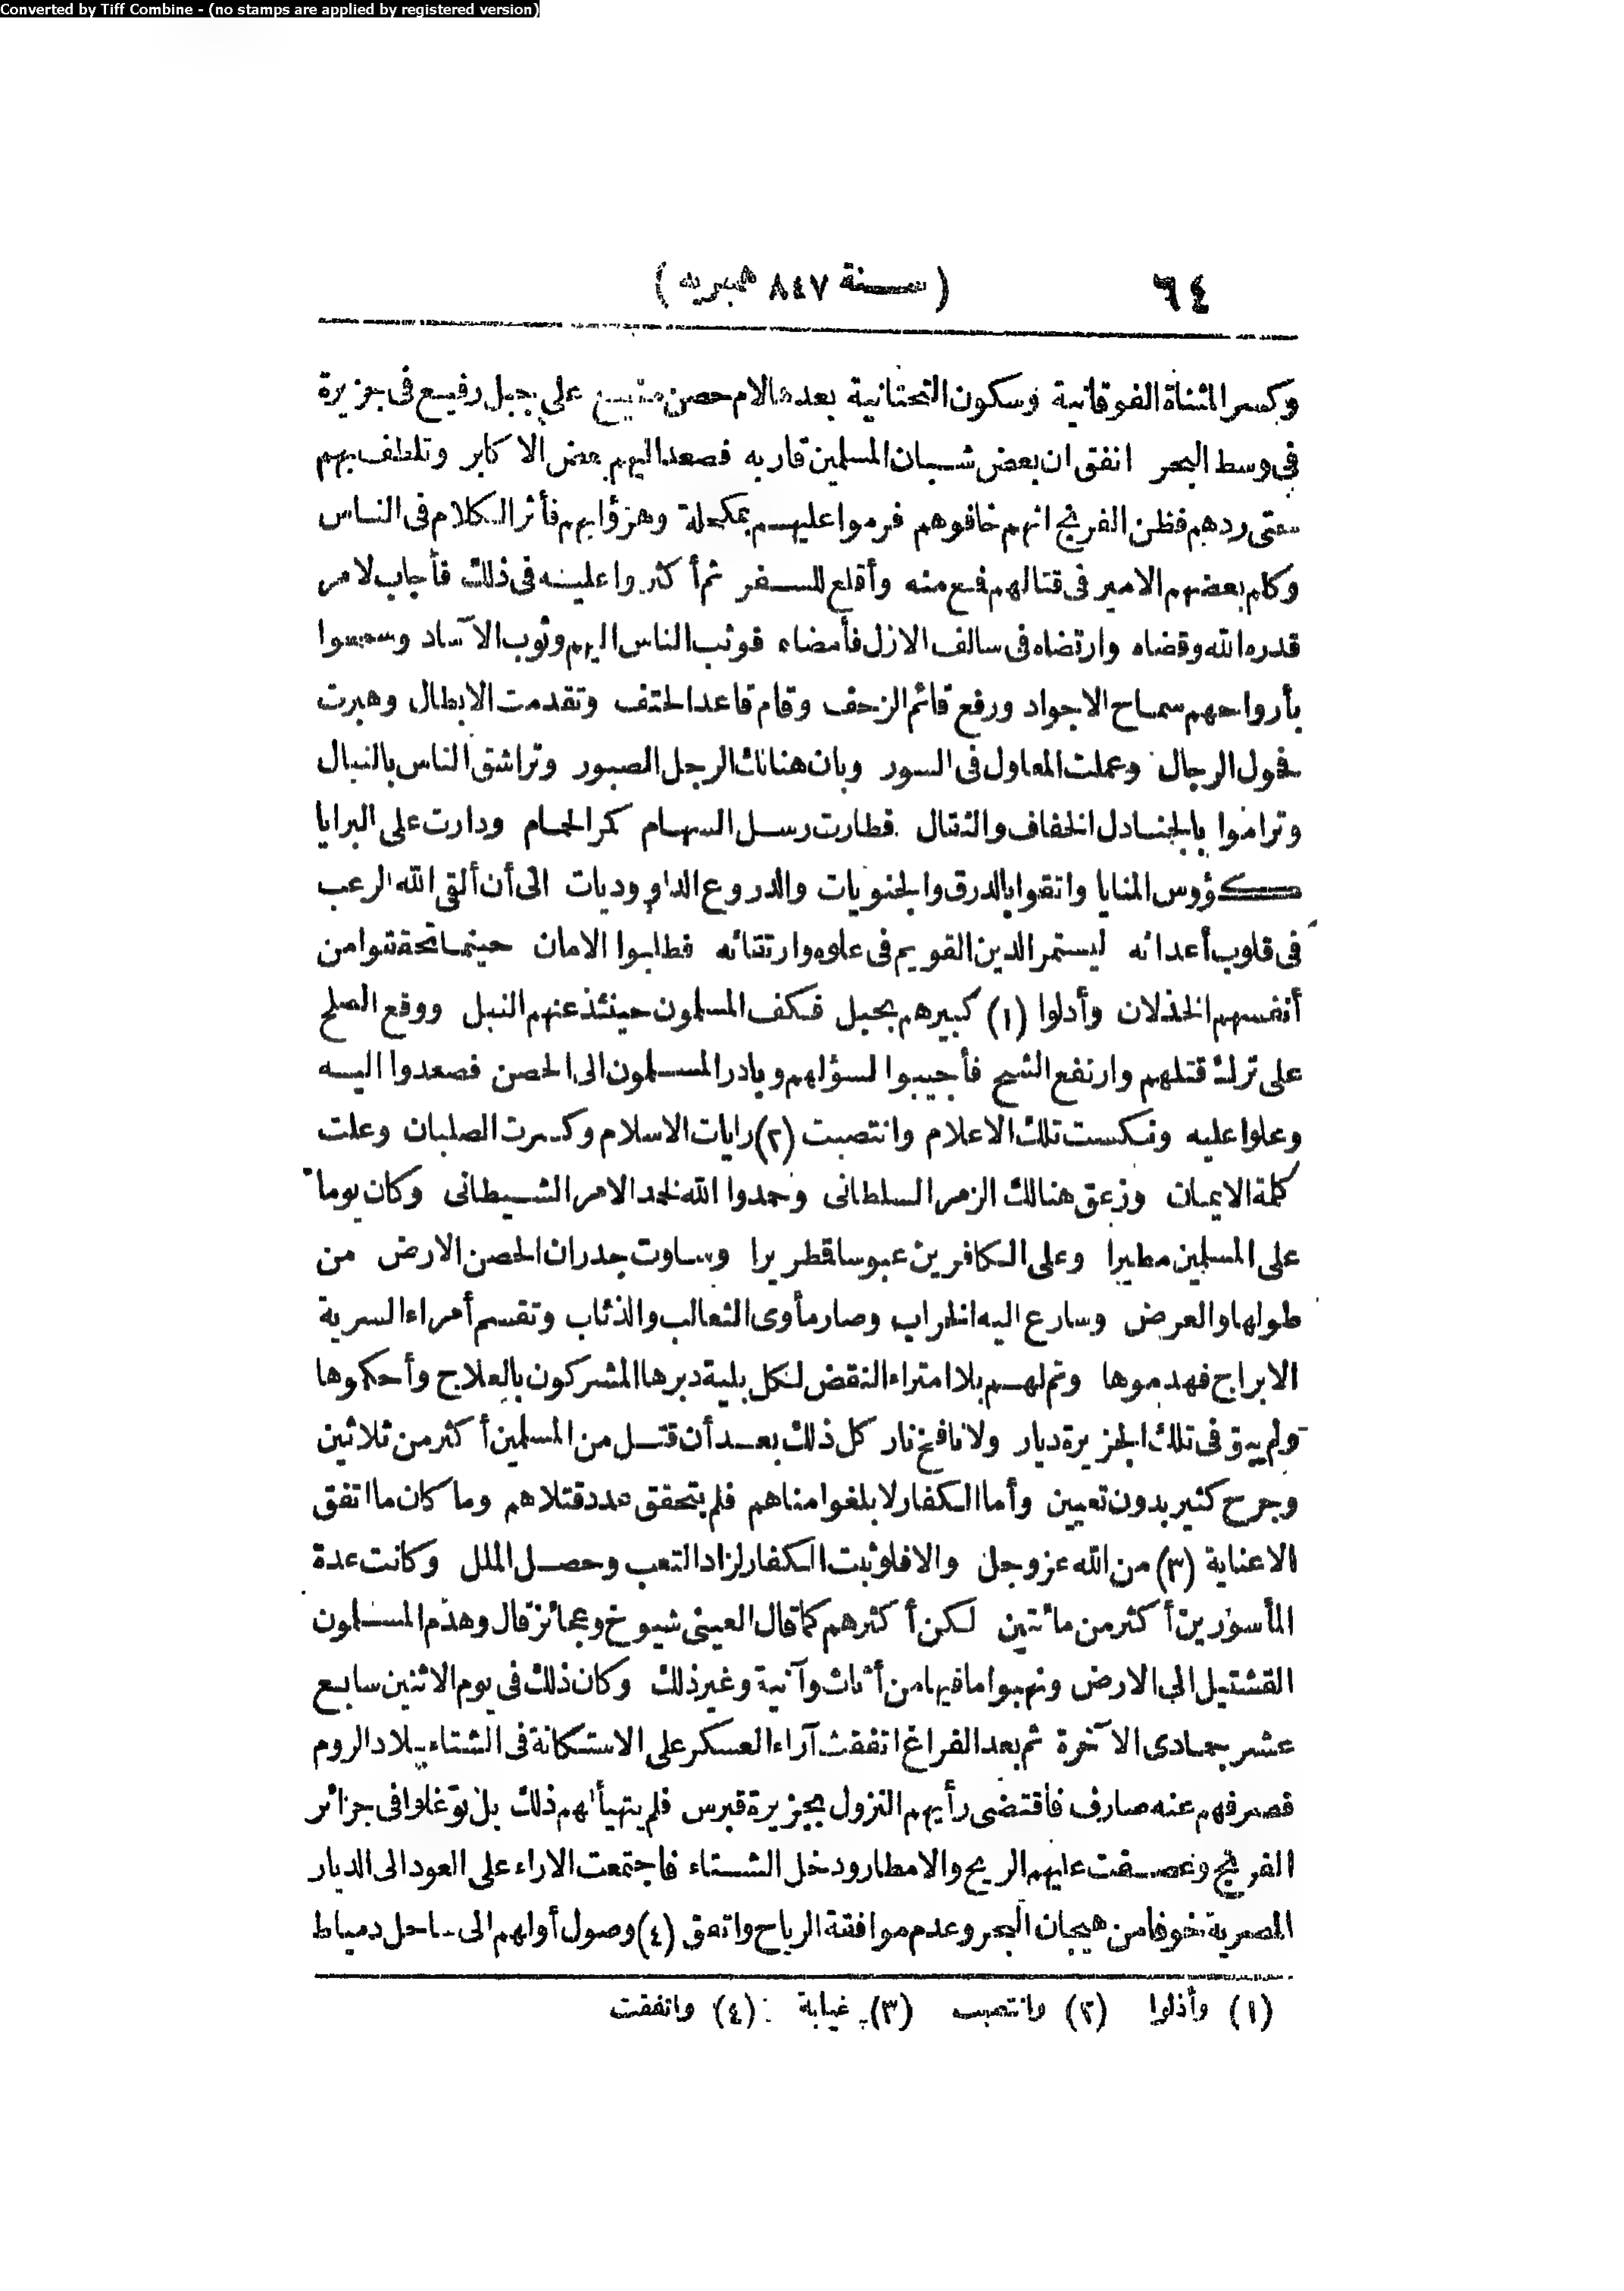 Converted by Tiff Combine - (no stamps are applied by registered version)
٦٤ (سنة ٨٤٧ هجريه)
وكسر المثناة الفوقانية وسكون التحتانية بعدها لام حصن منيع على جبل رفيع فى جزيرة
فى وسط البحر اتفق ان بعض شبان المسلمين قاربه فصعد اليهم بعض الاكابر وتلطف بهم
حتى ردهم فظن الفرنج انهم خافوهم فرموا عليهم بمكحلة وهزؤا بهم فأثر الكلام فى الناس
وكلم بعضهم الامير فى قتالهم فمنع منه وأقلع للسفر ثم أكثروا عليه فى ذلك فأجاب لامر
قدره الله وقضاه وارتضاه فى سالف الازل فأمضاه فوثب الناس اليهم وثوب الآساد وسمحوا
بأرواحهم سماح الاجواد ورفع قائم الزحف وقام قاعد الحتف وتقدمت الابطال وهبرت
فحول الرجال وعملت المعاول فى السور وبان هنالك الرجل الصبور وتراشق الناس بالنبال
وتراموا بالجنادل الخفاف والثقال فطارت رسل السهام كمر الحمام ودارت على البرايا
كؤوس المنايا واتقوا بالدرق والجنويات والدروع الداووديات الى أن ألقى الله الرعب
فى قلوب أعدائه ليستمر الدين القويم فى علوه وارتقائه فطلبوا الامان حينما تحققوا من
أنفسهم الخذلان وأدلوا (١) كبيرهم بحبل فكف المسلمون حينئذ عنهم النبل ووقع الصلح
على ترك قتلهم وارتفع الشح فأجيبوا لسؤلهم وبادر المسلمون الى الحصن فصعدوا اليه
وعلوا عليه ونكست تلك الاعلام وانتصبت (٢) رايات الاسلام وكسرت الصلبان وعلت
كلمة الايمان وزعق هنالك الزمر السلطانى وحمدوا الله لخمد الامر الشيطانى وكان يوما
على المسلمين مطيرا وعلى الكافرين عبوسا قطريرا وساوت جدران الحصن الارض من
طولها والعرض وسارع اليه الخراب وصار مأوى الثعالب والذئاب وتقسم أمراء السرية
الابراج فهدموها وتم لهم بلا امتراء النقض لكل بلية دبرها المشركون بالعلاج وأحكموها
ولم يبق فى تلك الجزيرة ديار ولا نافخ نار كل ذلك بعد أن قتل من المسلمين أكثر من ثلاثين
وجرح كثير بدون تعيين وأما الكفار لا بلغوا مناهم فلم يتحقق عدد قتلاهم وما كان ما اتفق
الا عناية (٣) من الله عز وجل والا فلو ثبت الكفار لزاد التعب وحصل الملل وكانت عدة
المأسورين أكثر من مائتين لكن أكثرهم كما قال العينى شيوخ وعجائز قال وهدم المسلمون
القشتيل الى الارض ونهبوا ما فيها من أثاث وآنية وغير ذلك وكان ذلك فى يوم الاثنين سابع
عشر جمادى الآخرة ثم بعد الفراغ اتفقت آراء العسكر على الاستكانة فى الشتاء ببلاد الروم
فصرفهم عنه صارف فاقتضى رأيهم النزول بجزيرة قبرس فلم يتهيأ لهم ذلك بل توغلوا فى جزائر
الفرنج وعصفت عليهم الريح والامطار ودخل الشتاء فاجتمعت الاراء على العود الى الديار
المصرية خوفا من هيجان البحر وعدم موافقة الرياح واتفق (٤) وصول أولهم الى ساحل دمياط
(١) وأذلوا (٢) وانتصب (٣) غيابة (٤) واتفقت